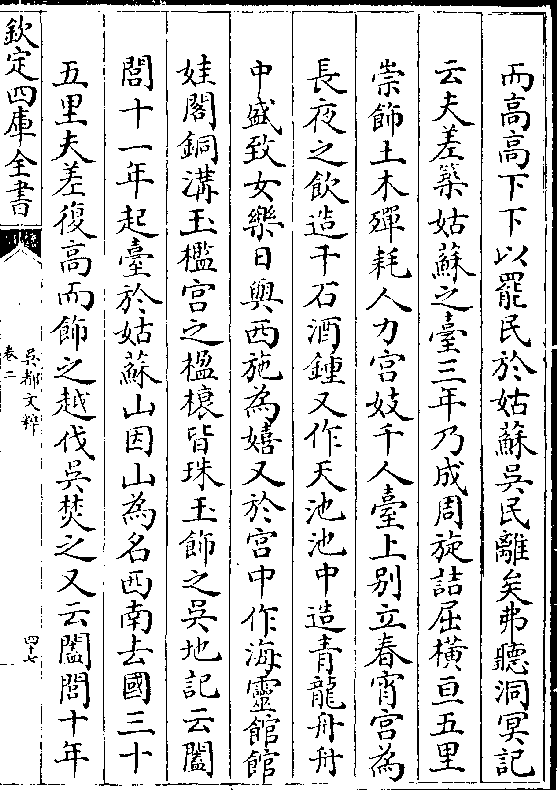 而高高下下以罷民於姑蘇吳民離矣弗聽洞冥記
云夫差築姑蘇之臺三年乃成周旋詰屈橫亘五里
崇飾土木殫耗人力宫妓千人臺上别立春宵宫為
長夜之飲造千石酒鍾又作天池池中造青龍舟舟
中盛致女樂日與西施為嬉又於宫中作海靈館館
娃閣銅溝玉檻宫之楹榱皆珠玉飾之吳地記云闔
閭十一年起臺於姑蘇山因山為名西南去國三十
五里夫差復高而飾之越伐吳焚之又云闔閭十年
欽定四庫全書
吳都文粹
卷二
四十七